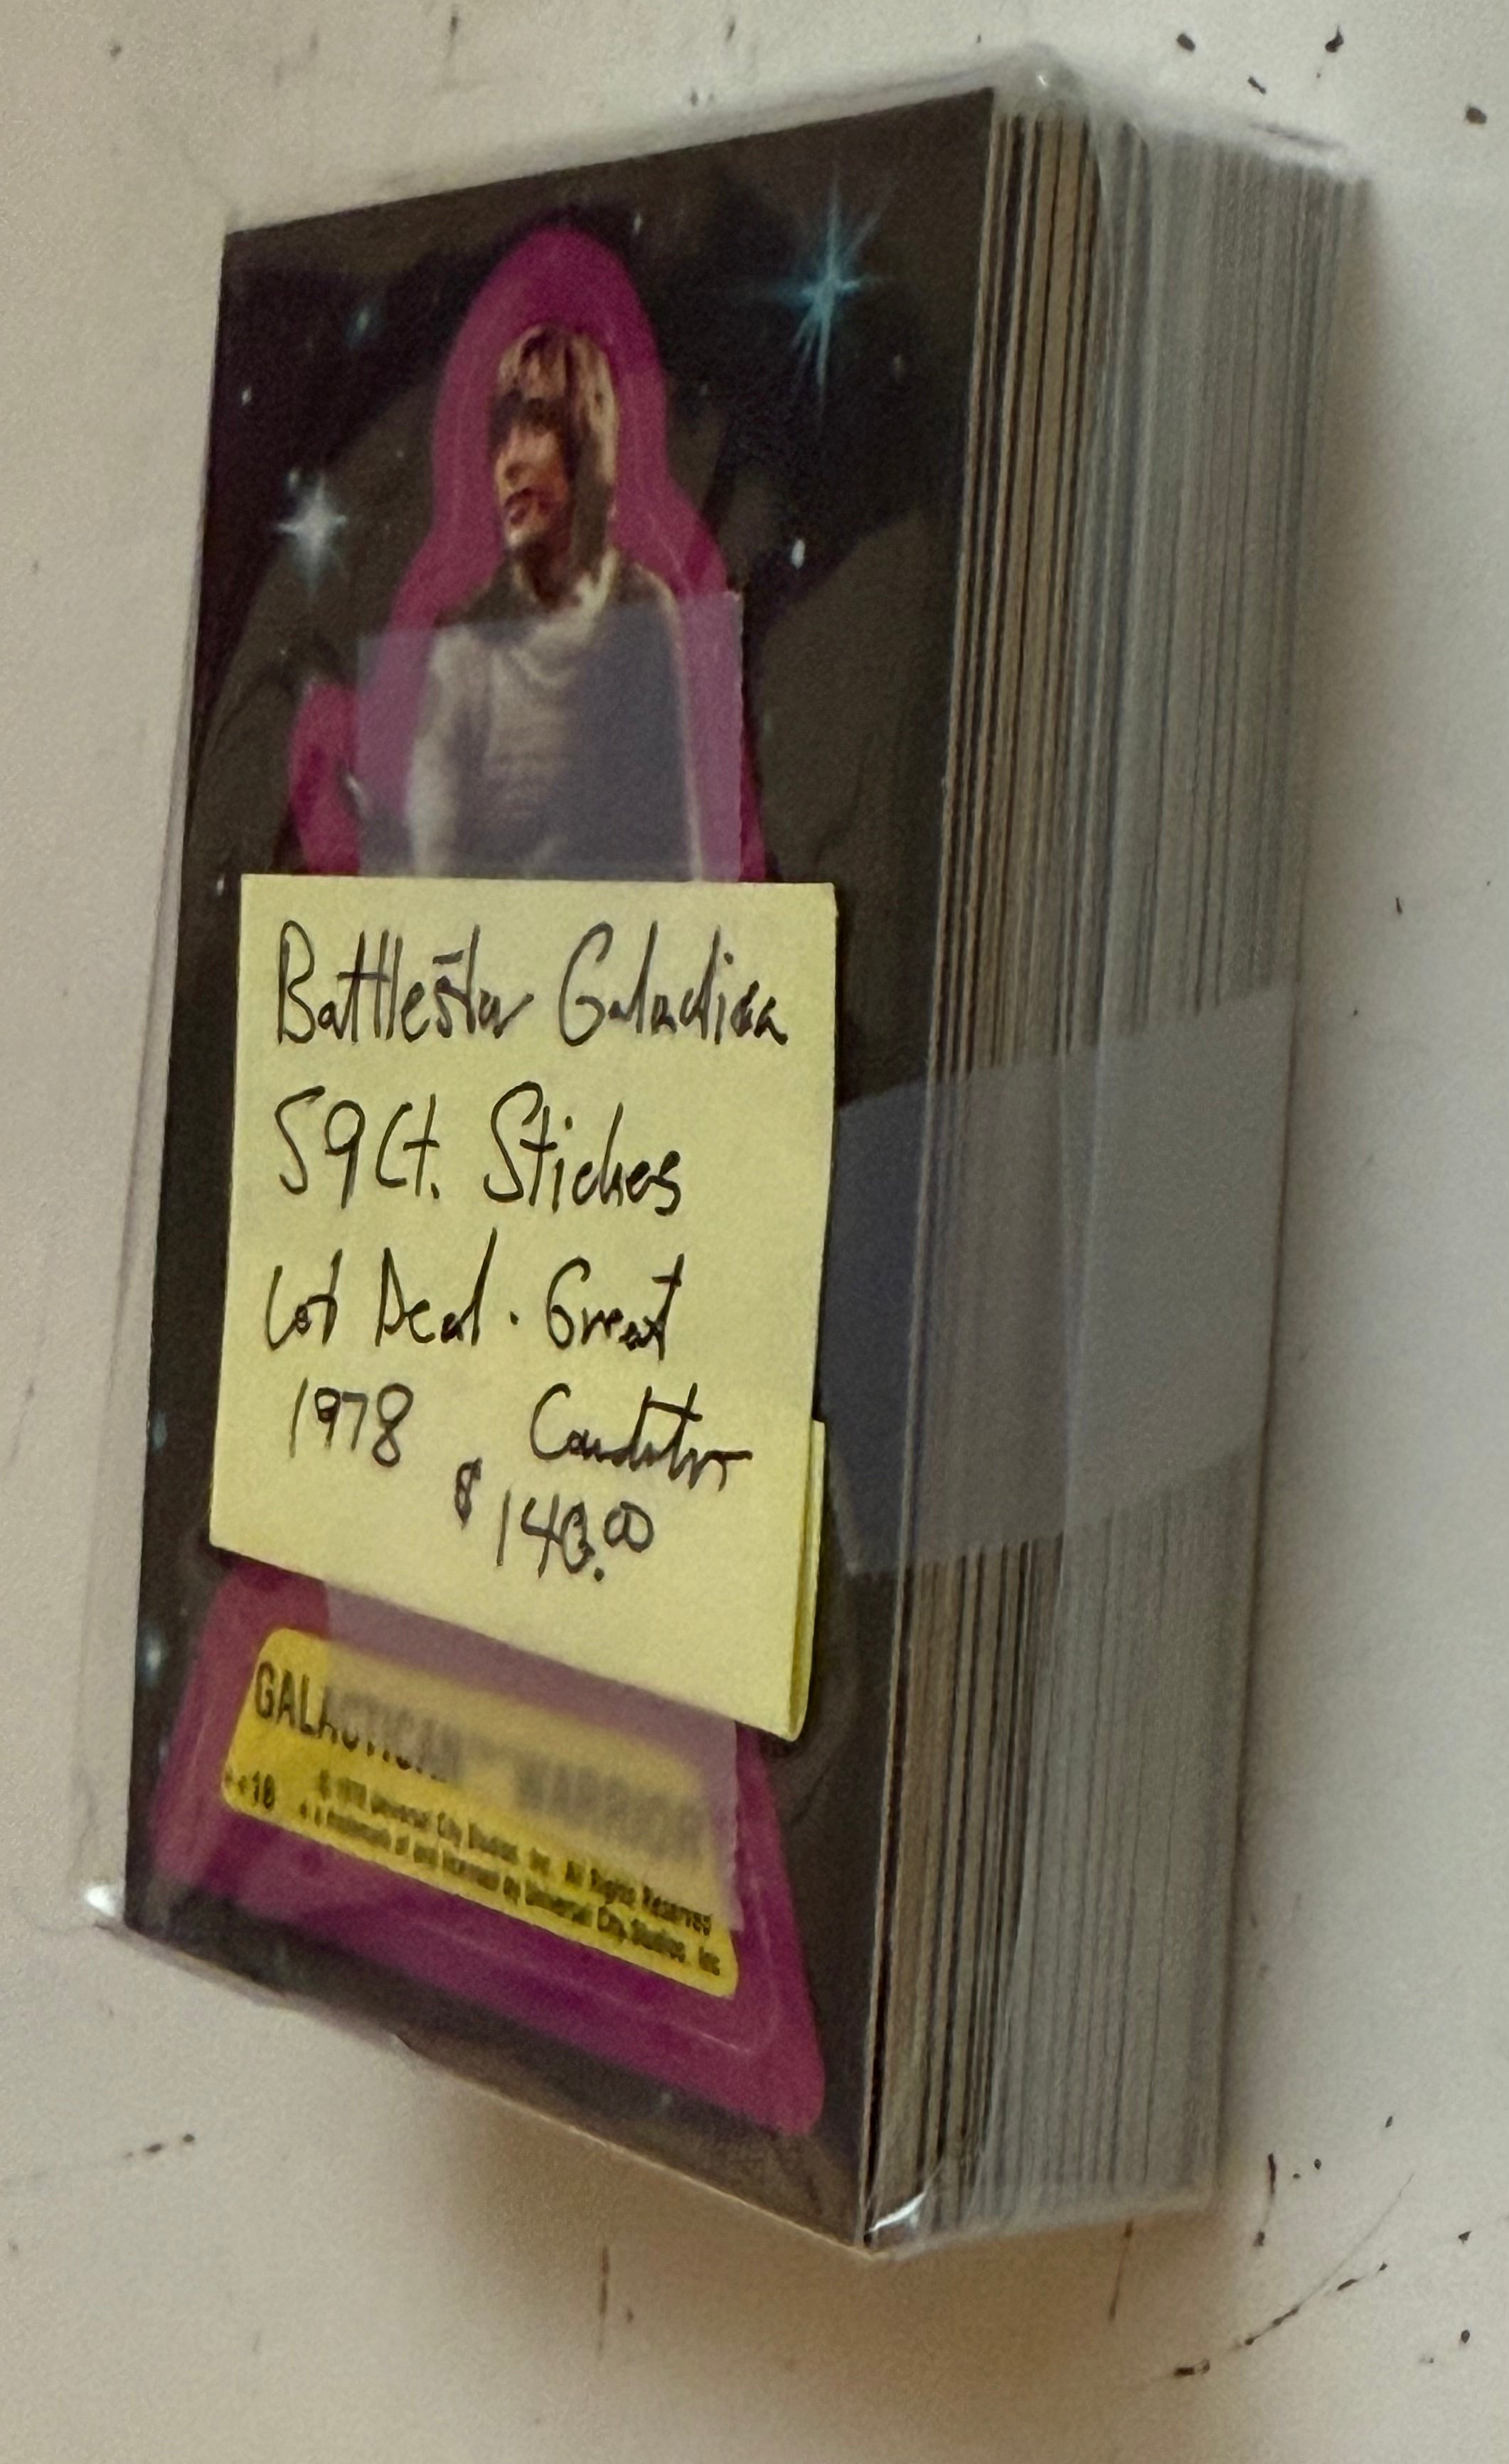 Battlestar Galactica
59 Ct. Stickers
Lot Deal · Great
1978 Condition
$140.00
GALACTICAN WARRIOR
© 1978 Universal City Studios, Inc. All Rights Reserved
a trademark of and licensed by Universal City Studios, Inc